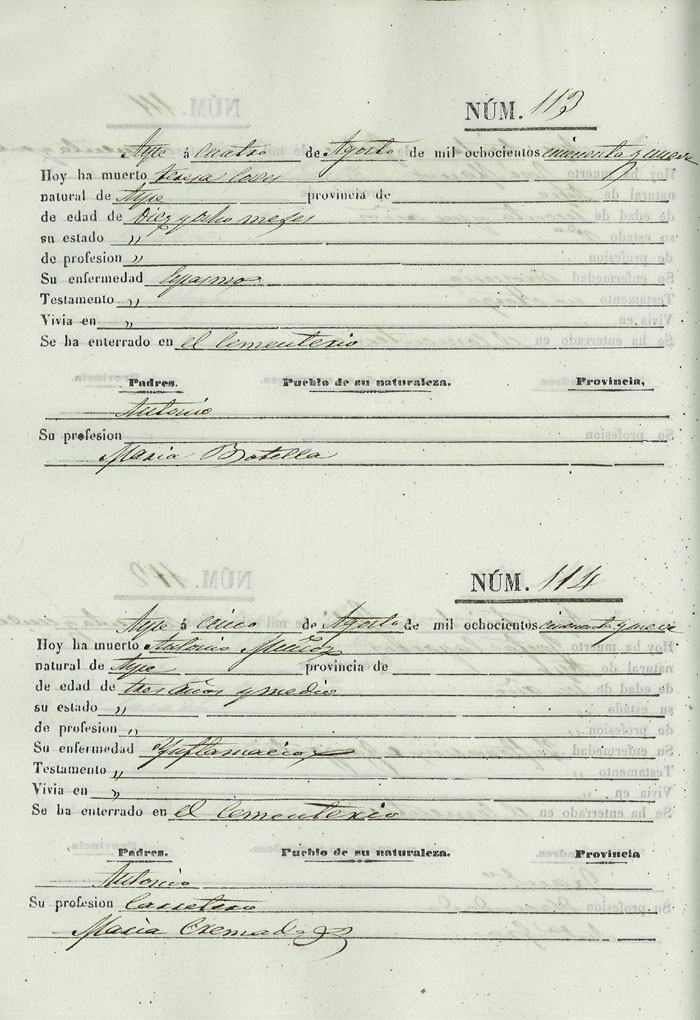 NÚM. 113
Aspe á Cuatro de Agosto de mil ochocientos cincuenta y nueve
Hoy ha muerto teresa
natural de Aspe provincia de
de edad de Diez y ocho meses
su estado „
de profesion „
Su enfermedad Espasmo
Testamento „
Vivia en „
Se ha enterrado en el Cementerio
Padres. Pueblo de su naturaleza. Provincia,
Antonio
Su profesion
Maria Botella
NÚM. 114
Aspe á Cinco de Agosto de mil ochocientos cincuenta y nueve
Hoy ha muerto Antonio Muñoz
natural de Aspe provincia de
de edad de tres años y medio
su estado „
de profesion „
Su enfermedad Ynflamacion
Testamento „
Vivia en „
Se ha enterrado en el Cementerio
Padres. Pueblo de su naturaleza. Provincia
Antonio
Su profesion Carretero
Maria Cremades